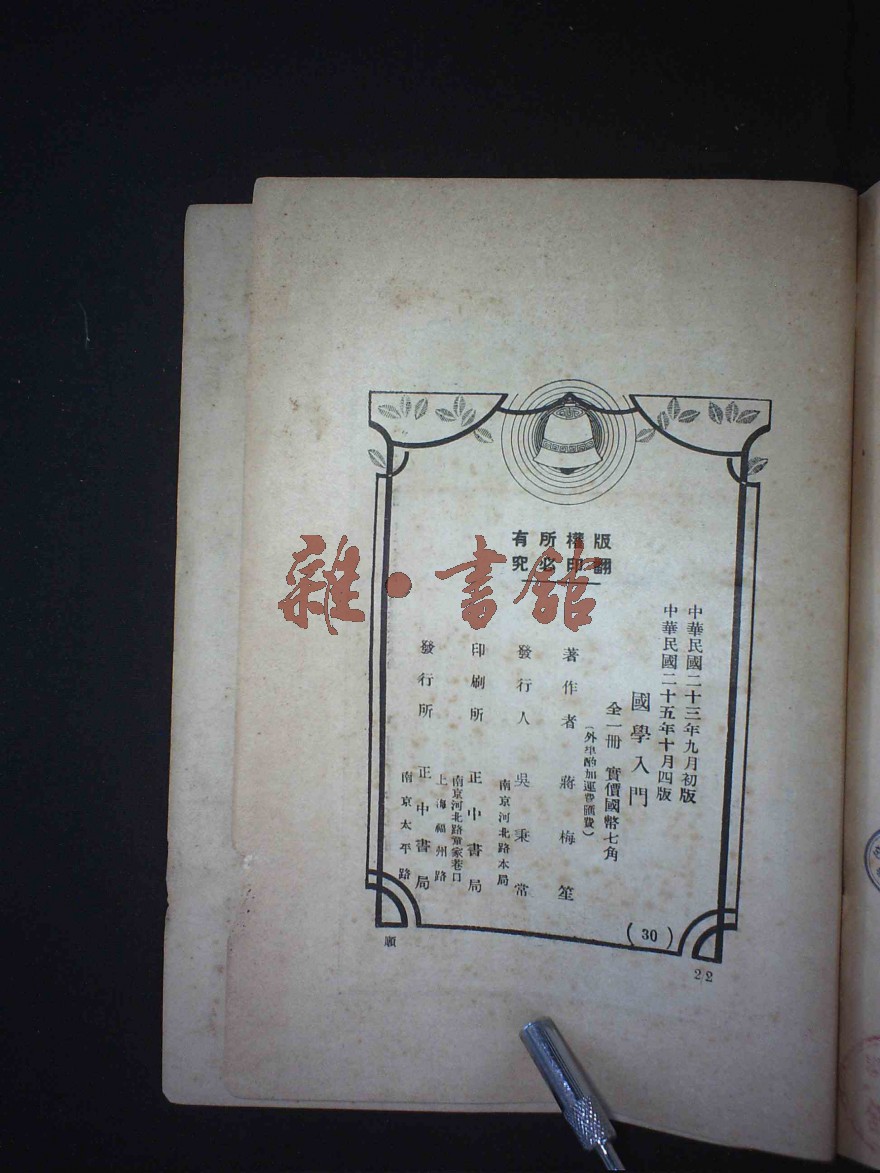 版權所有
翻印必究
中華民國二十三年九月初版
中華民國二十五年十月四版
國學入門
全一冊 實價國幣七角
(外埠酌加運費匯費)
著作者 蔣梅笙
發行人 吳秉常
南京河北路本局
印刷所 正中書局
南京河北路童家巷口
發行所 正中書局
上海福州路
南京太平路
(30)
22
順
雜·書館